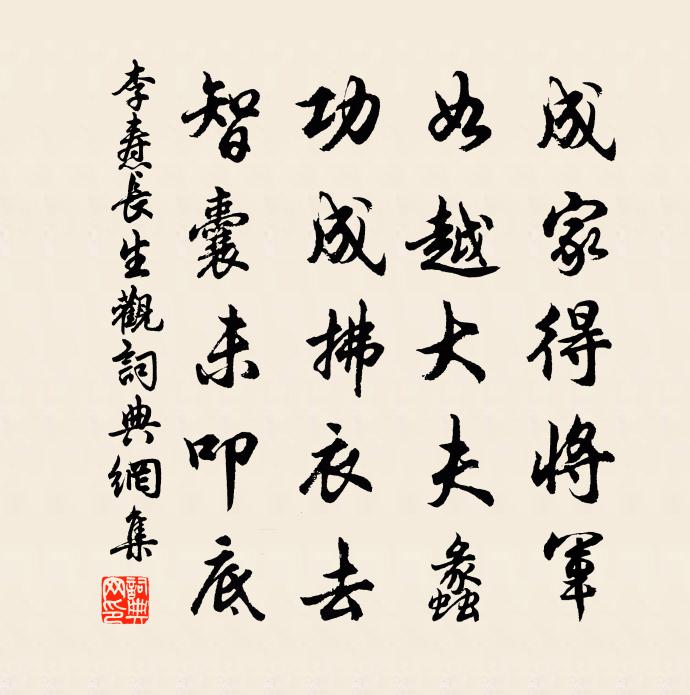 成家得將軍
如越大夫蠡
功成拂衣去
智囊未叩底
李燾長生觀詞典網集
詞典網印